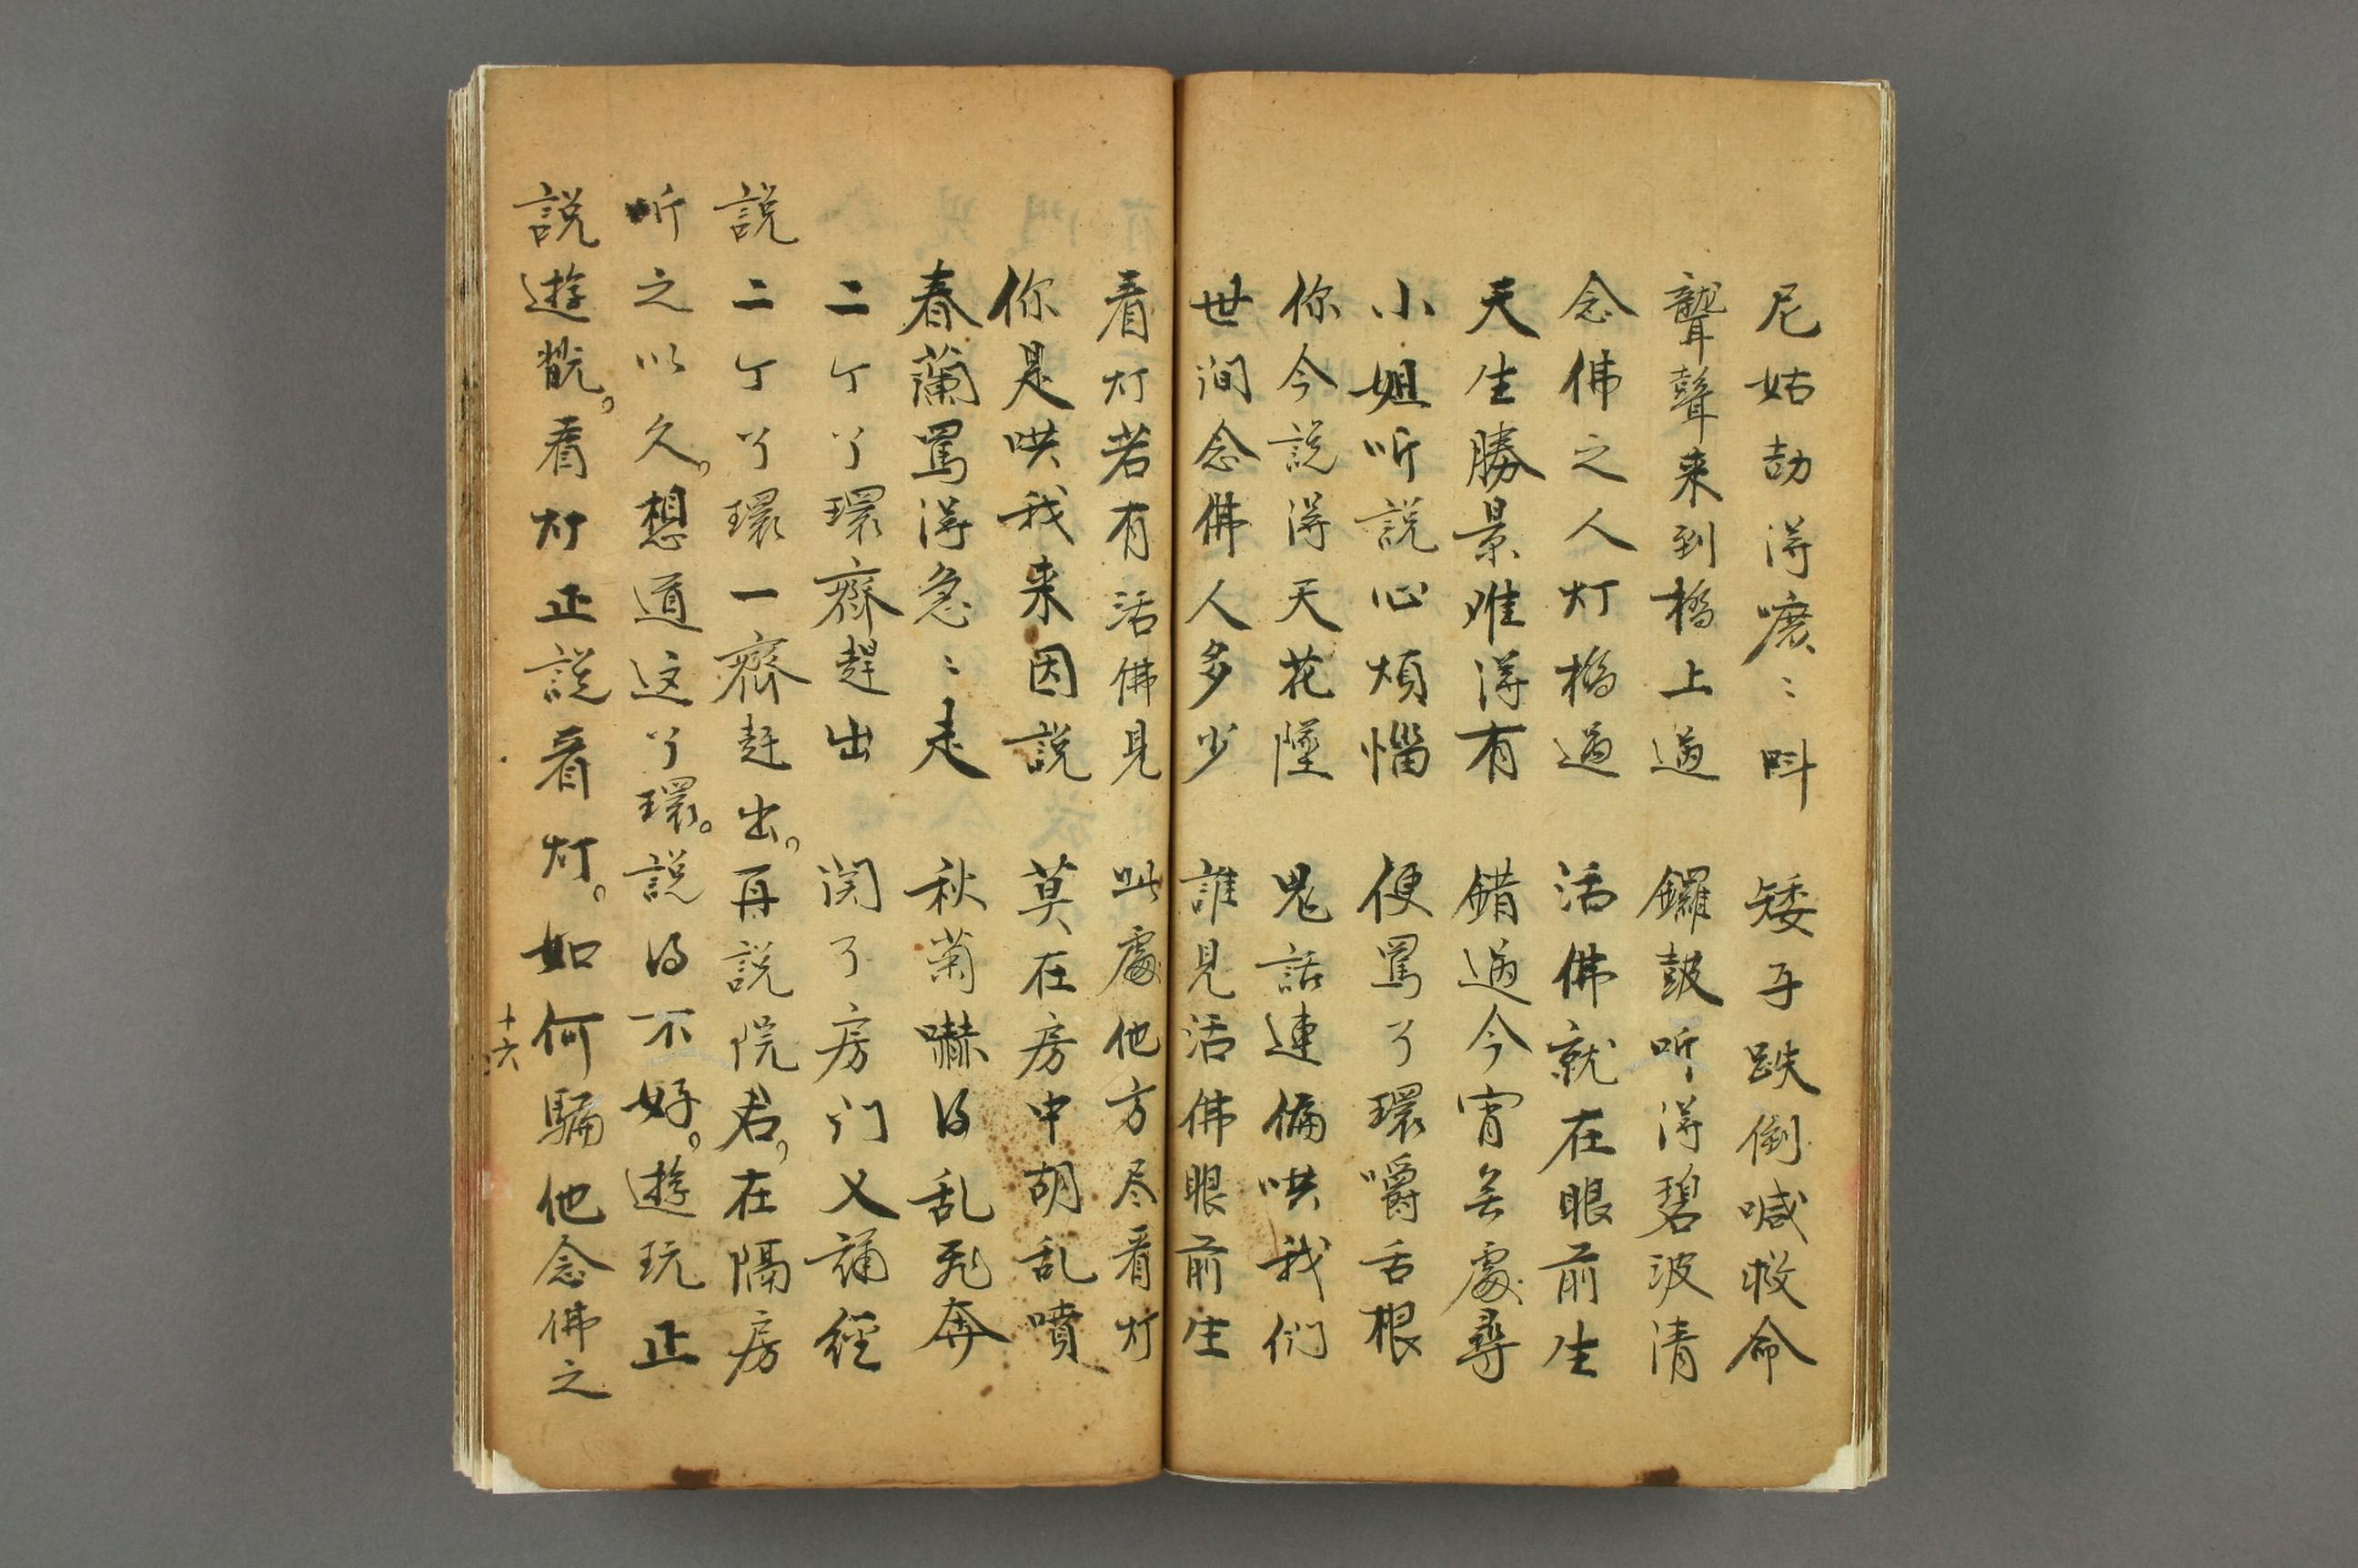 尼姑劫淂嚒〻呌 矮子跌倒喊救命
聾聲来到橋上過 鑼鼓听淂碧波清
念佛之人灯橋過 活佛就在眼前生
天生勝景难淂有 錯過今宵无處尋
小姐听説心煩惱 便罵丫環嚼舌根
你今説淂天花墜 鬼話連偏哄我们
世间念佛人多少 誰見活佛眼前生
看灯若有活佛見 此處他方尽看灯
你是哄我来因説 莫在房中胡乱噴
春蘭罵淂急〻走 秋菊嚇得乱飛奔
二个丫環齊趕出 関了房门又誦經
説二个丫環一齊赶出。再説院君，在隔房
听之以久，想道这丫環。説得不好。遊玩正
説遊翫。看灯正説看灯。如何騙他念佛之
十六